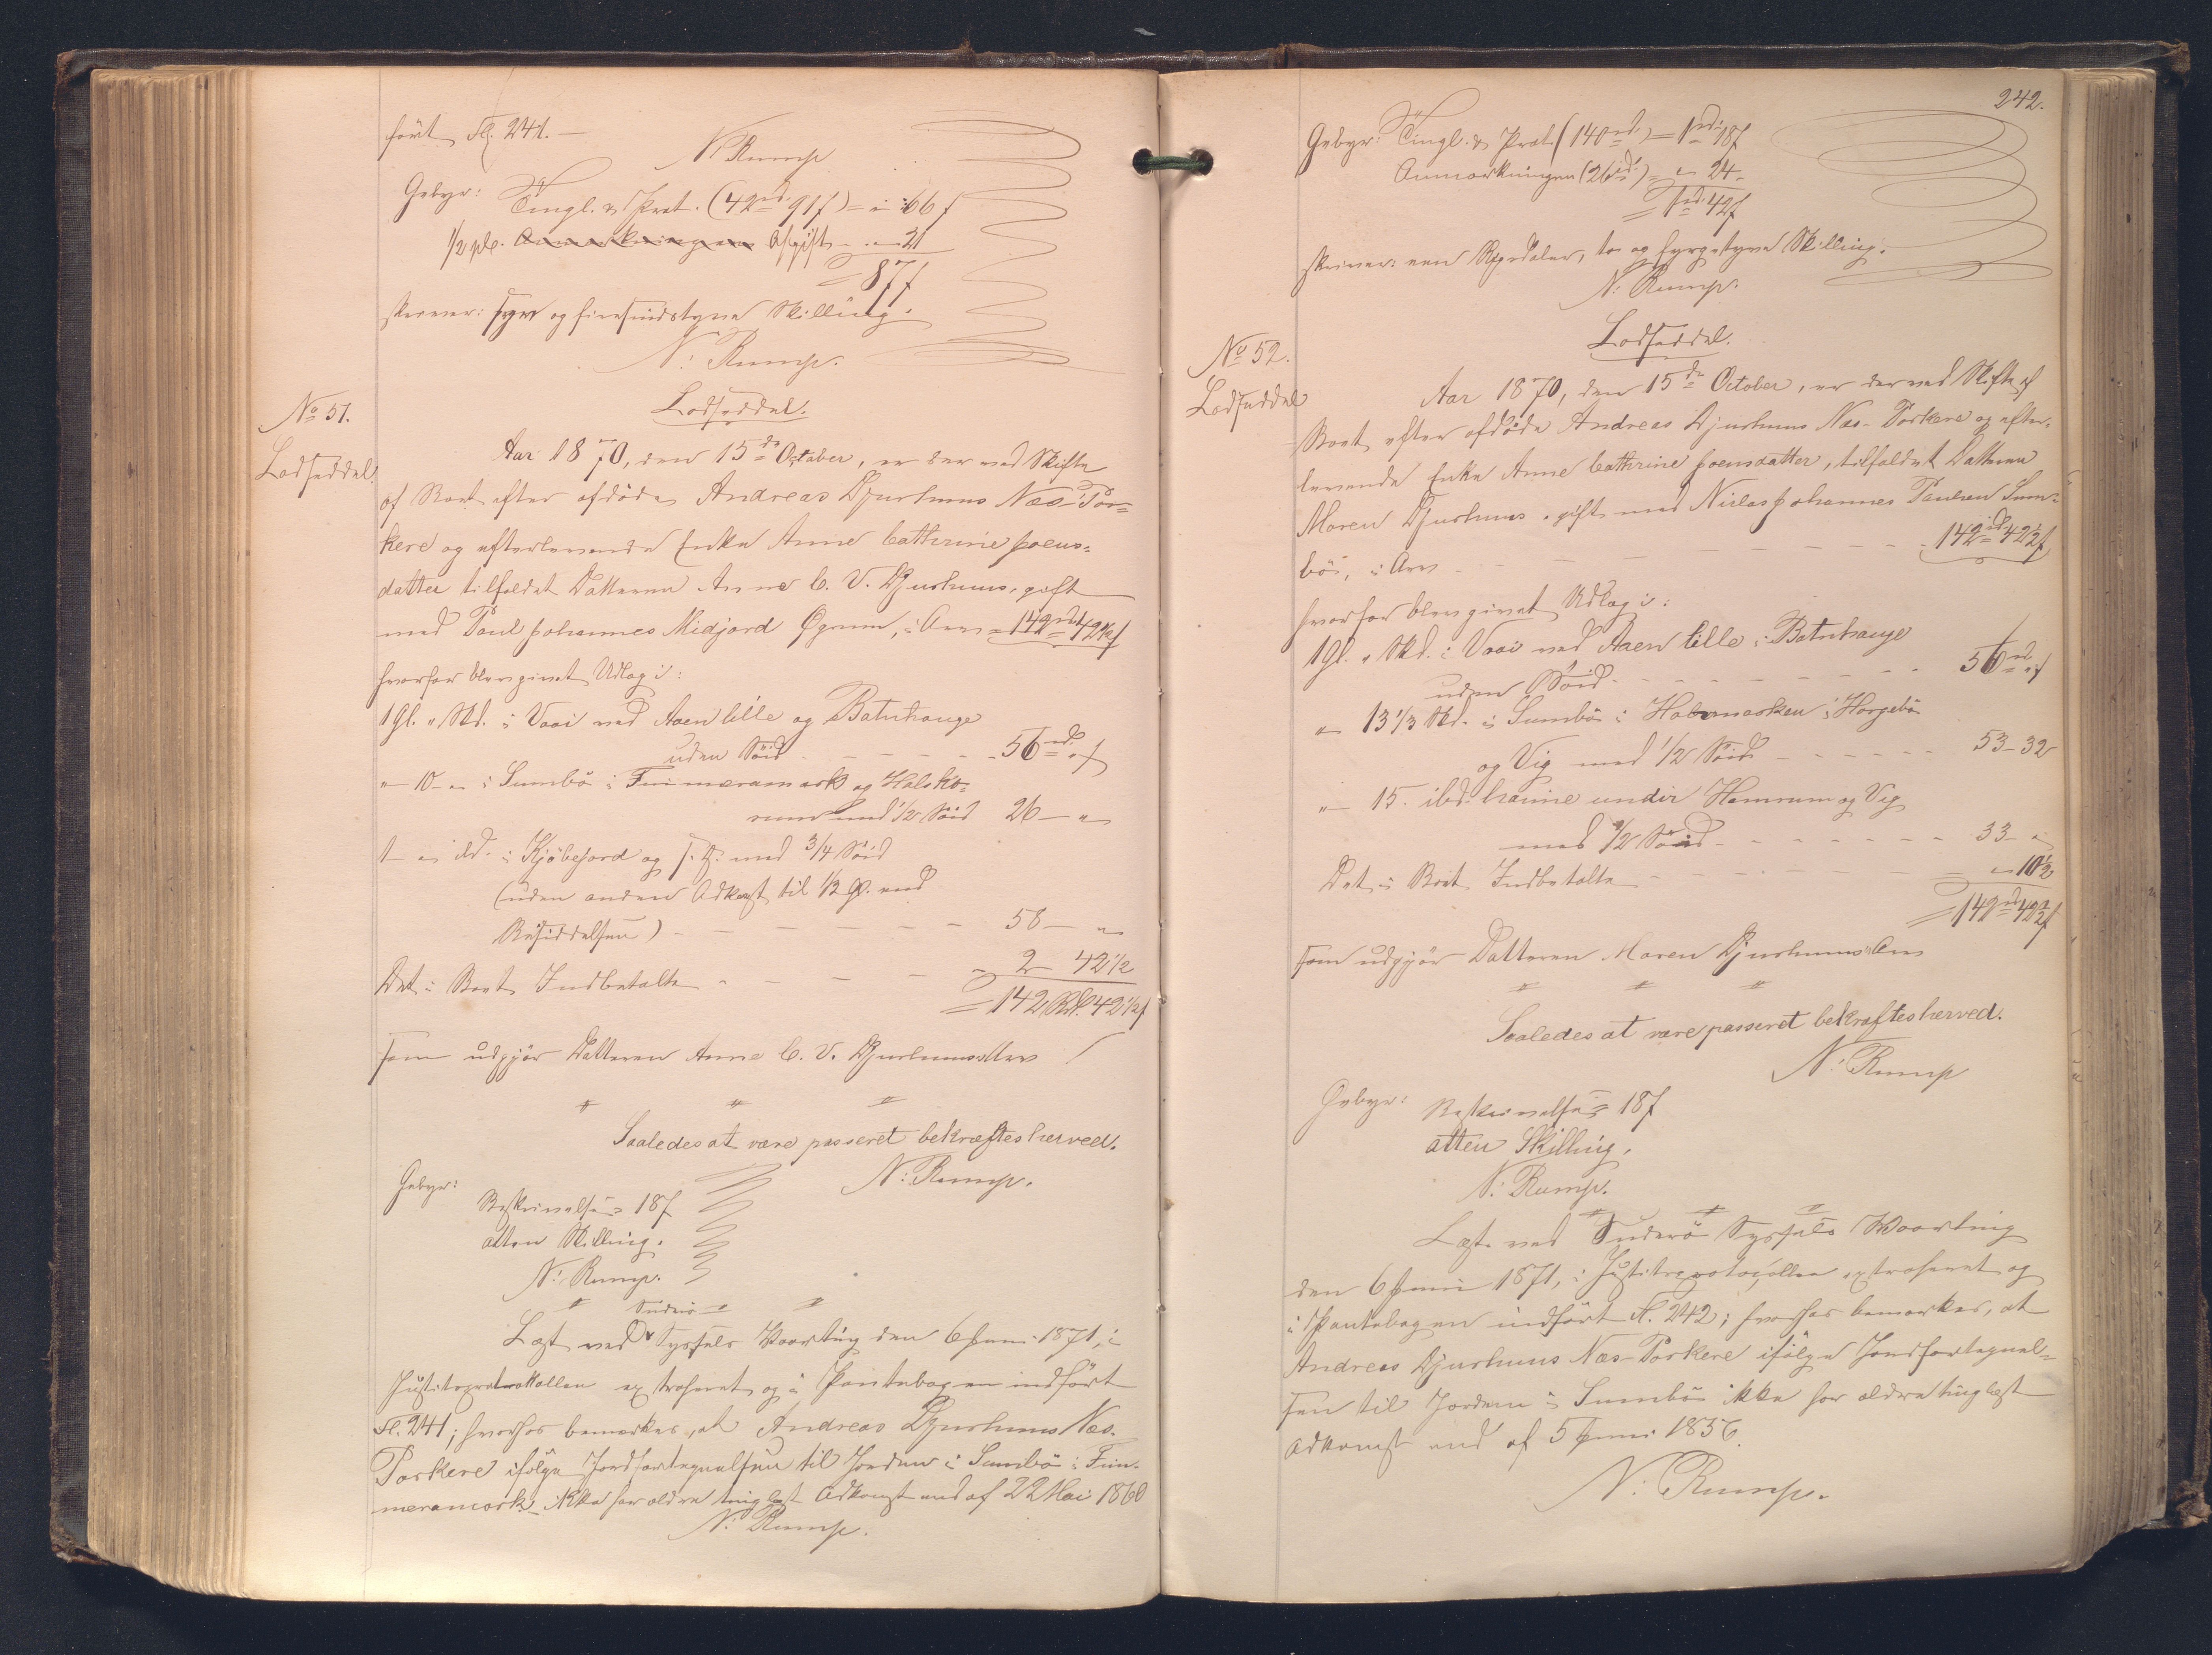 ført Fol. 241. —
N. Rump
Gebyr: Tingl. & Prot. (42rd 91ſ) = „ 66ſ
1/2 pCt. Anmærkningen Afgift — „ 21
= 87ſ
skriver: syv og firesindstyve Skilling.
N. Rump.
No 51.
Lodseddel.
Lodseddel.
Aar 1870, den 15de October, er der ved Skifte
af Boet efter afdøde Andreas Djurhuus Næs-Por=
kere og efterlevende Enke Anne Cathrine Joens=
datter tilfaldet Datteren Anne C. V. Djurhuus, gift
med Poul Johannes Midjord Øgrum, i Arv = 142rd 42½ſ
hvorfor blev givet Udlæg i:
1 Gl. „ Skd. i Vaai ved Aaen lille og Batnhauge
uden Söid — — — — 56rd „ſ
„— 10 — „ i Sumbö i Fuimæramork og Halsko=
rum med ½ Söid 26 — „
1 — „ ibd. i Kjöbefjord og f. H. med ¾ Söid
(uden anden Adkomst til ½ Gl. end
Besiddelsen) — — — — — — 58 — „
Det i Boet Indbetalte — — — 2 42½
= 142 Rd. 42½ſ
som udgjør Datteren Anne C. V. Djurhuus's Arv
Saaledes at være passeret bekræftes herved.
N: Rump.
Gebyr:
Beskrivelsen = 18ſ
atten Skilling.
N: Rump.
Suderø
Læst ved Syssels Vaarting den 6 Juni 1871, i
Justitsprotokollen extraheret og i Pantebogen indført
Fol. 241; hvorhos bemærkes, at Andreas Djurhuus Næs-
Porkere ifölge Jordfortegnelsen til Jorden i Sumbö i Fuim-
meramork ikke har ældre tinglæst Adkomst end af 22 Mai 1860
N: Rump.
242.
Gebyr: Tingl. & Prot. (140rd) = 1rd 18ſ
Anmærkningen (26rd) = „ 24 -
= 1rd 42ſ
skriver: een Rigsdaler, to og fyrgetyve Skilling.
N: Rump.
No 52.
Lodseddel
Lodseddel.
Aar 1870, den 15de October, er der ved Skifte af
Boet efter afdøde Andreas Djurhuus Næs-Porkere og efter-
levende Enke Anne Cathrine Joensdatter, tilfaldet Datteren
Maren Djurhuus, gift med Niclas Johannes Poulsen Sum=
bø, i Arv — — — — — — — 142rd 42½ſ
hvorfor blev givet Udlæg i:
1 Gl. „ Skd. i Vaai ved Aaen lille i Batnhauge
uden Söid — — — — — — 56rd „ſ
„— 13 1/3 Skd. i Sumbö i Habnmarken i Horgebö
og Vig med ½ Söid — — — — 53 - 32
„— 15. ibd. hanne undir Hamrum og Vig
med ½ Söid — — — — — — 33 - „
Det i Boet Indbetalte — — — — — — „ 10½
= 142rd 42½ſ
som udgjör Datteren Maren Djurhuus's Arv
Saaledes at være passeret bekræftes herved.
N: Rump
Gebyr: Beskrivelsen = 18ſ
atten Skilling.
N: Rump.
Læst ved Suderö Syssels Vaarting
den 6 Juni 1871, i Justitsprotocollen extraheret og
i Pantebogen indført Fol. 242; hvorhos bemærkes, at
Andreas Djurhuus Næs-Porkere ifölge Jordfortegnel=
sen til Jorden i Sumbö ikke har ældre tinglæst
Adkomst end af 5 Juni 1856.
N: Rump.